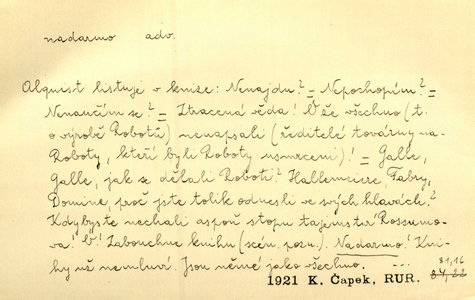 nadarmo adv.
Alquist listuje v knize: Nenajdu? = Nepochopím? =
Nenaučím se? = Ztracená věda! Ó že všechno (t.
o výrobě Robotů) nenapsali (ředitelé továrny na
Roboty, kteří byli Roboty usmrceni)! = Galle,
Galle, jak se dělali Roboti? Hallemeiere, Fabry,
Domine, proč jste tolik odnesli ve svých hlavách?
Kdybyste nechali aspoň stopu tajemství Rossumo-
va! Ó! Zabouchne knihu (scén. pozn.). Nadarmo! Kni-
hy už nemluví. Jsou němé jako všechno. ---
81,16
1921 K. Čapek, RUR. 84,22